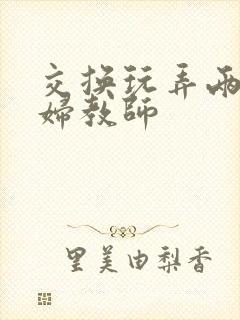 交换玩弄两
婦教師
里美由梨香